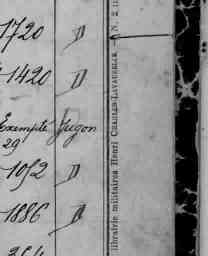 1720 D
1420 D
Exempté Jugon
29
1052 D
1886 D
librairie militaires Henri CHARLES-LAVAUZELLE — N. 2